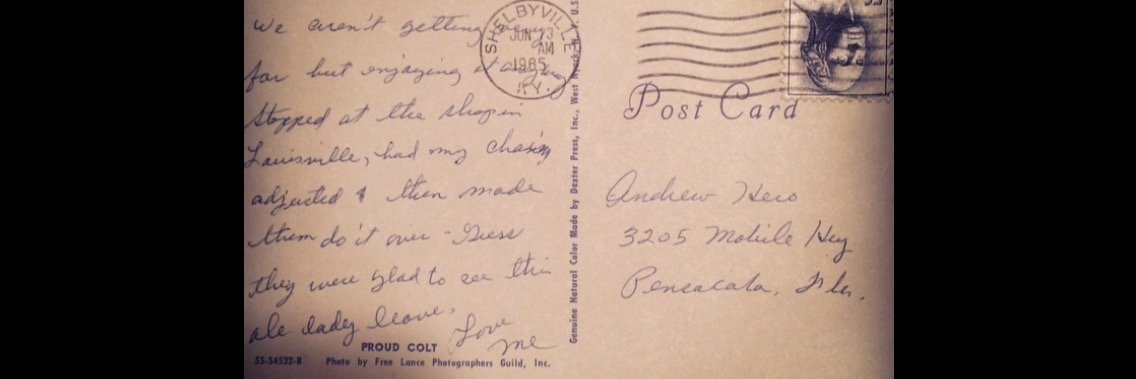 We aren't getting very
far but enjoying it anyway
Stopped at the shop in
Louisville, had my chassing
adjusted & then made
them do it over - Guess
they were glad to see this
ole lady leave.
Love
me
PROUD COLT
55-54532-B Photo by Free Lance Photographers Guild, Inc.
Genuine Natural Color Made by Dexter Press, Inc., West Nyack, N.Y. U.S.
SHELBYVILLE
JUN 23
AM
1965
KY.
Post Card
Andrew Hero
3205 Mobile Hwy
Pensacola, Fla.